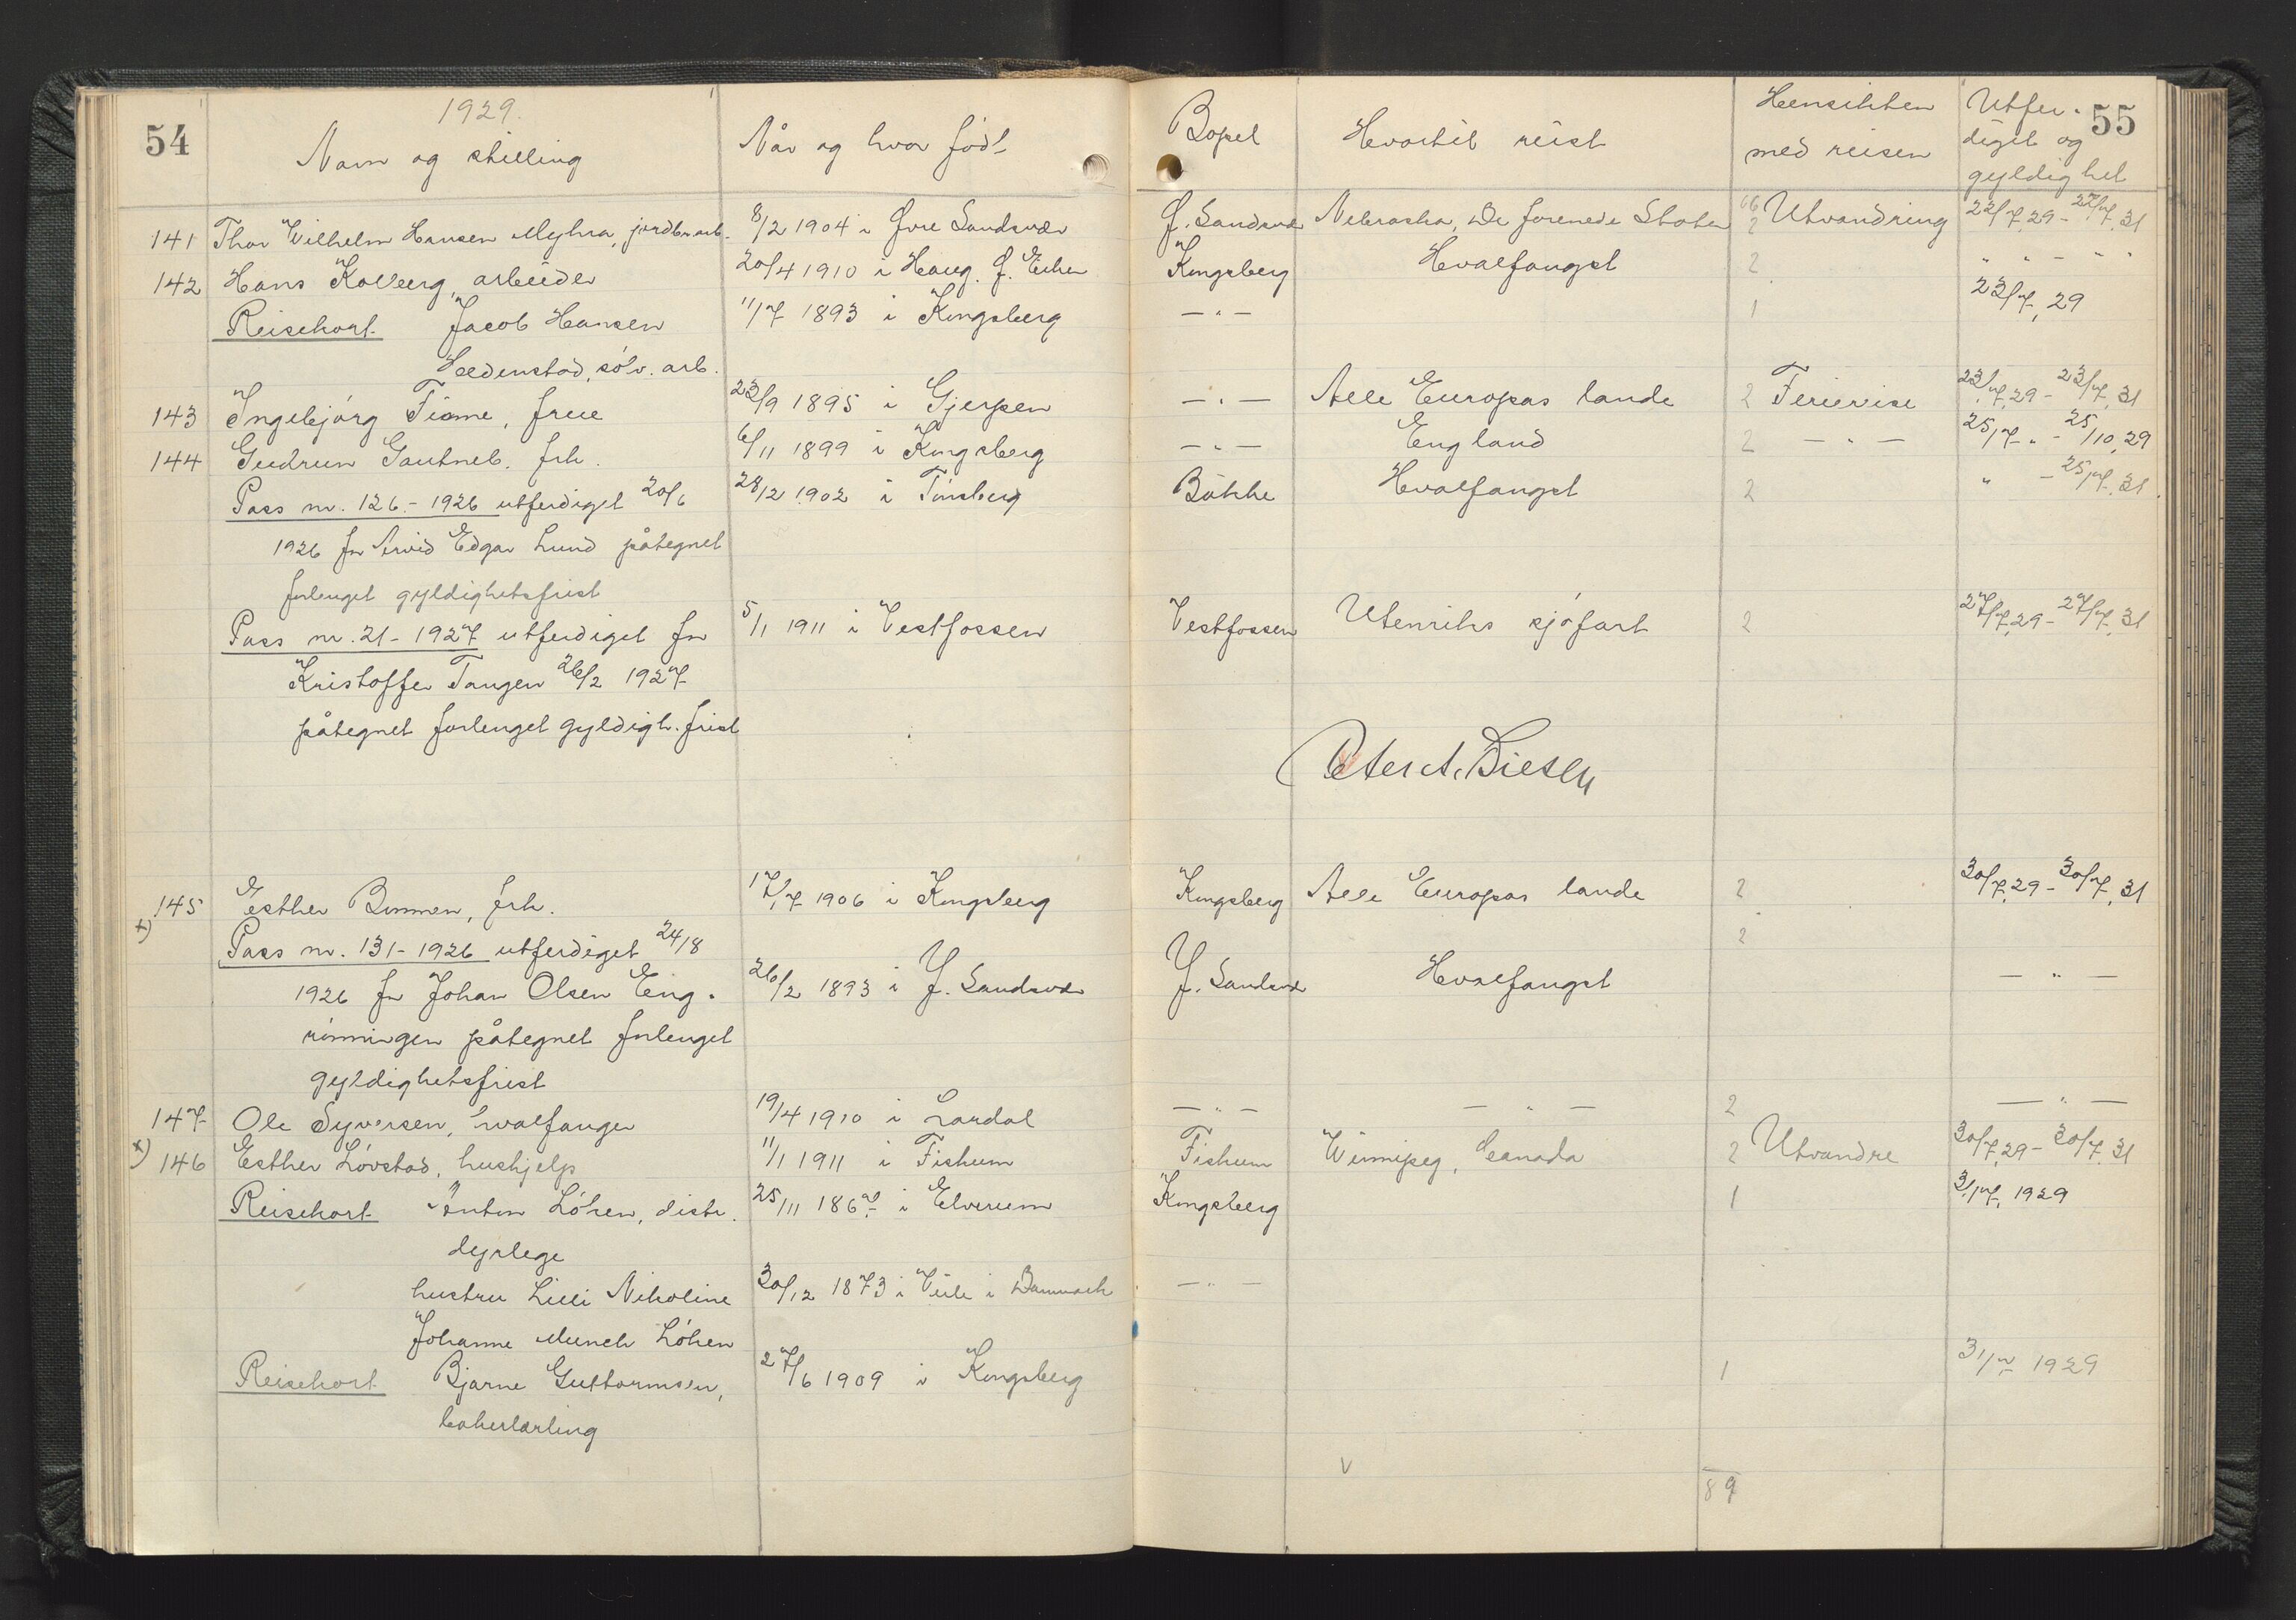 54
1929.
Navn og stilling
Når og hvor født
Bopel
Hvortil reist
Hensikten med reisen
Utferdiget og gyldighet
55
141 Thor Wilhelm Hansen Myhra, jordbr.arb. 8/2 1904 i Øvre Sandsvær Ø. Sandsvær Nebraska, De forenede Stater 66 2 Utvandring 22/7.29 - 22/7.31
142 Hans Kolberg, arbeider 20/4 1910 i Haug. Ø. Eiker Kongsberg Hvalfangst 2 " " - " "
Reisekort Jacob Hansen 11/7 1893 i Kongsberg — " — 1 22/7.29
Hedenstad, sølv. arb.
143 Ingebjørg Tiome, frue 23/9 1895 i Gjerpen — " — Alle Europas lande 2 Feriereise 23/7.29 - 23/7.31
144 Gudrun Gautneb, frk. 6/11 1899 i Kongsberg — " — England 2 — " — 25/7. " - 25/10.29
Pass nr. 126 - 1926 utferdiget 20/6 28/2 1902 i Tønsberg Bakke Hvalfangst 2 " - 25/7.31.
1926 for Arvid Edgar Lund påtegnet
forlenget gyldighetsfrist
Pass nr. 21 - 1927 utferdiget for 5/1 1911 i Vestfossen Vestfossen Utenriks sjøfart 2 27/7.29 - 27/7.31
Kristoffer Tangen 26/2 1927
påtegnet forlenget gyldigh. frist
145 Esther Bommen, frk. 17/7 1906 i Kongsberg Kongsberg Alle Europas lande 2 30/7.29 - 30/7.31
x) Pass nr. 131 - 1926 utferdiget 24/8 2
1926 for Johan Olsen Eng- 26/2 1893 i Y. Sandsvær Y. Sandsvær Hvalfangst — " —
rønningen påtegnet forlenget
gyldighetsfrist
147 Ole Syversen, hvalfanger 19/4 1910 i Lardal — " — — " — 2 — " —
x) 146 Esther Løvstad, hushjelp 11/1 1911 i Fiskum Fiskum Winnipeg, Canada 2 Utvandre 30/7.29 - 30/7.31
Reisekort Anton Løken, distr. 25/11 1867 i Elverum Kongsberg 1 31/7. 1929
dyrlege
hustru Lilli Nikoline 30/12 1873 i Veile i Danmark — " —
Johanne Munch Løken
Reisekort Bjarne Guttormsen, 27/6 1909 i Kongsberg 1 31/7 1929
bakerlærling
V
89